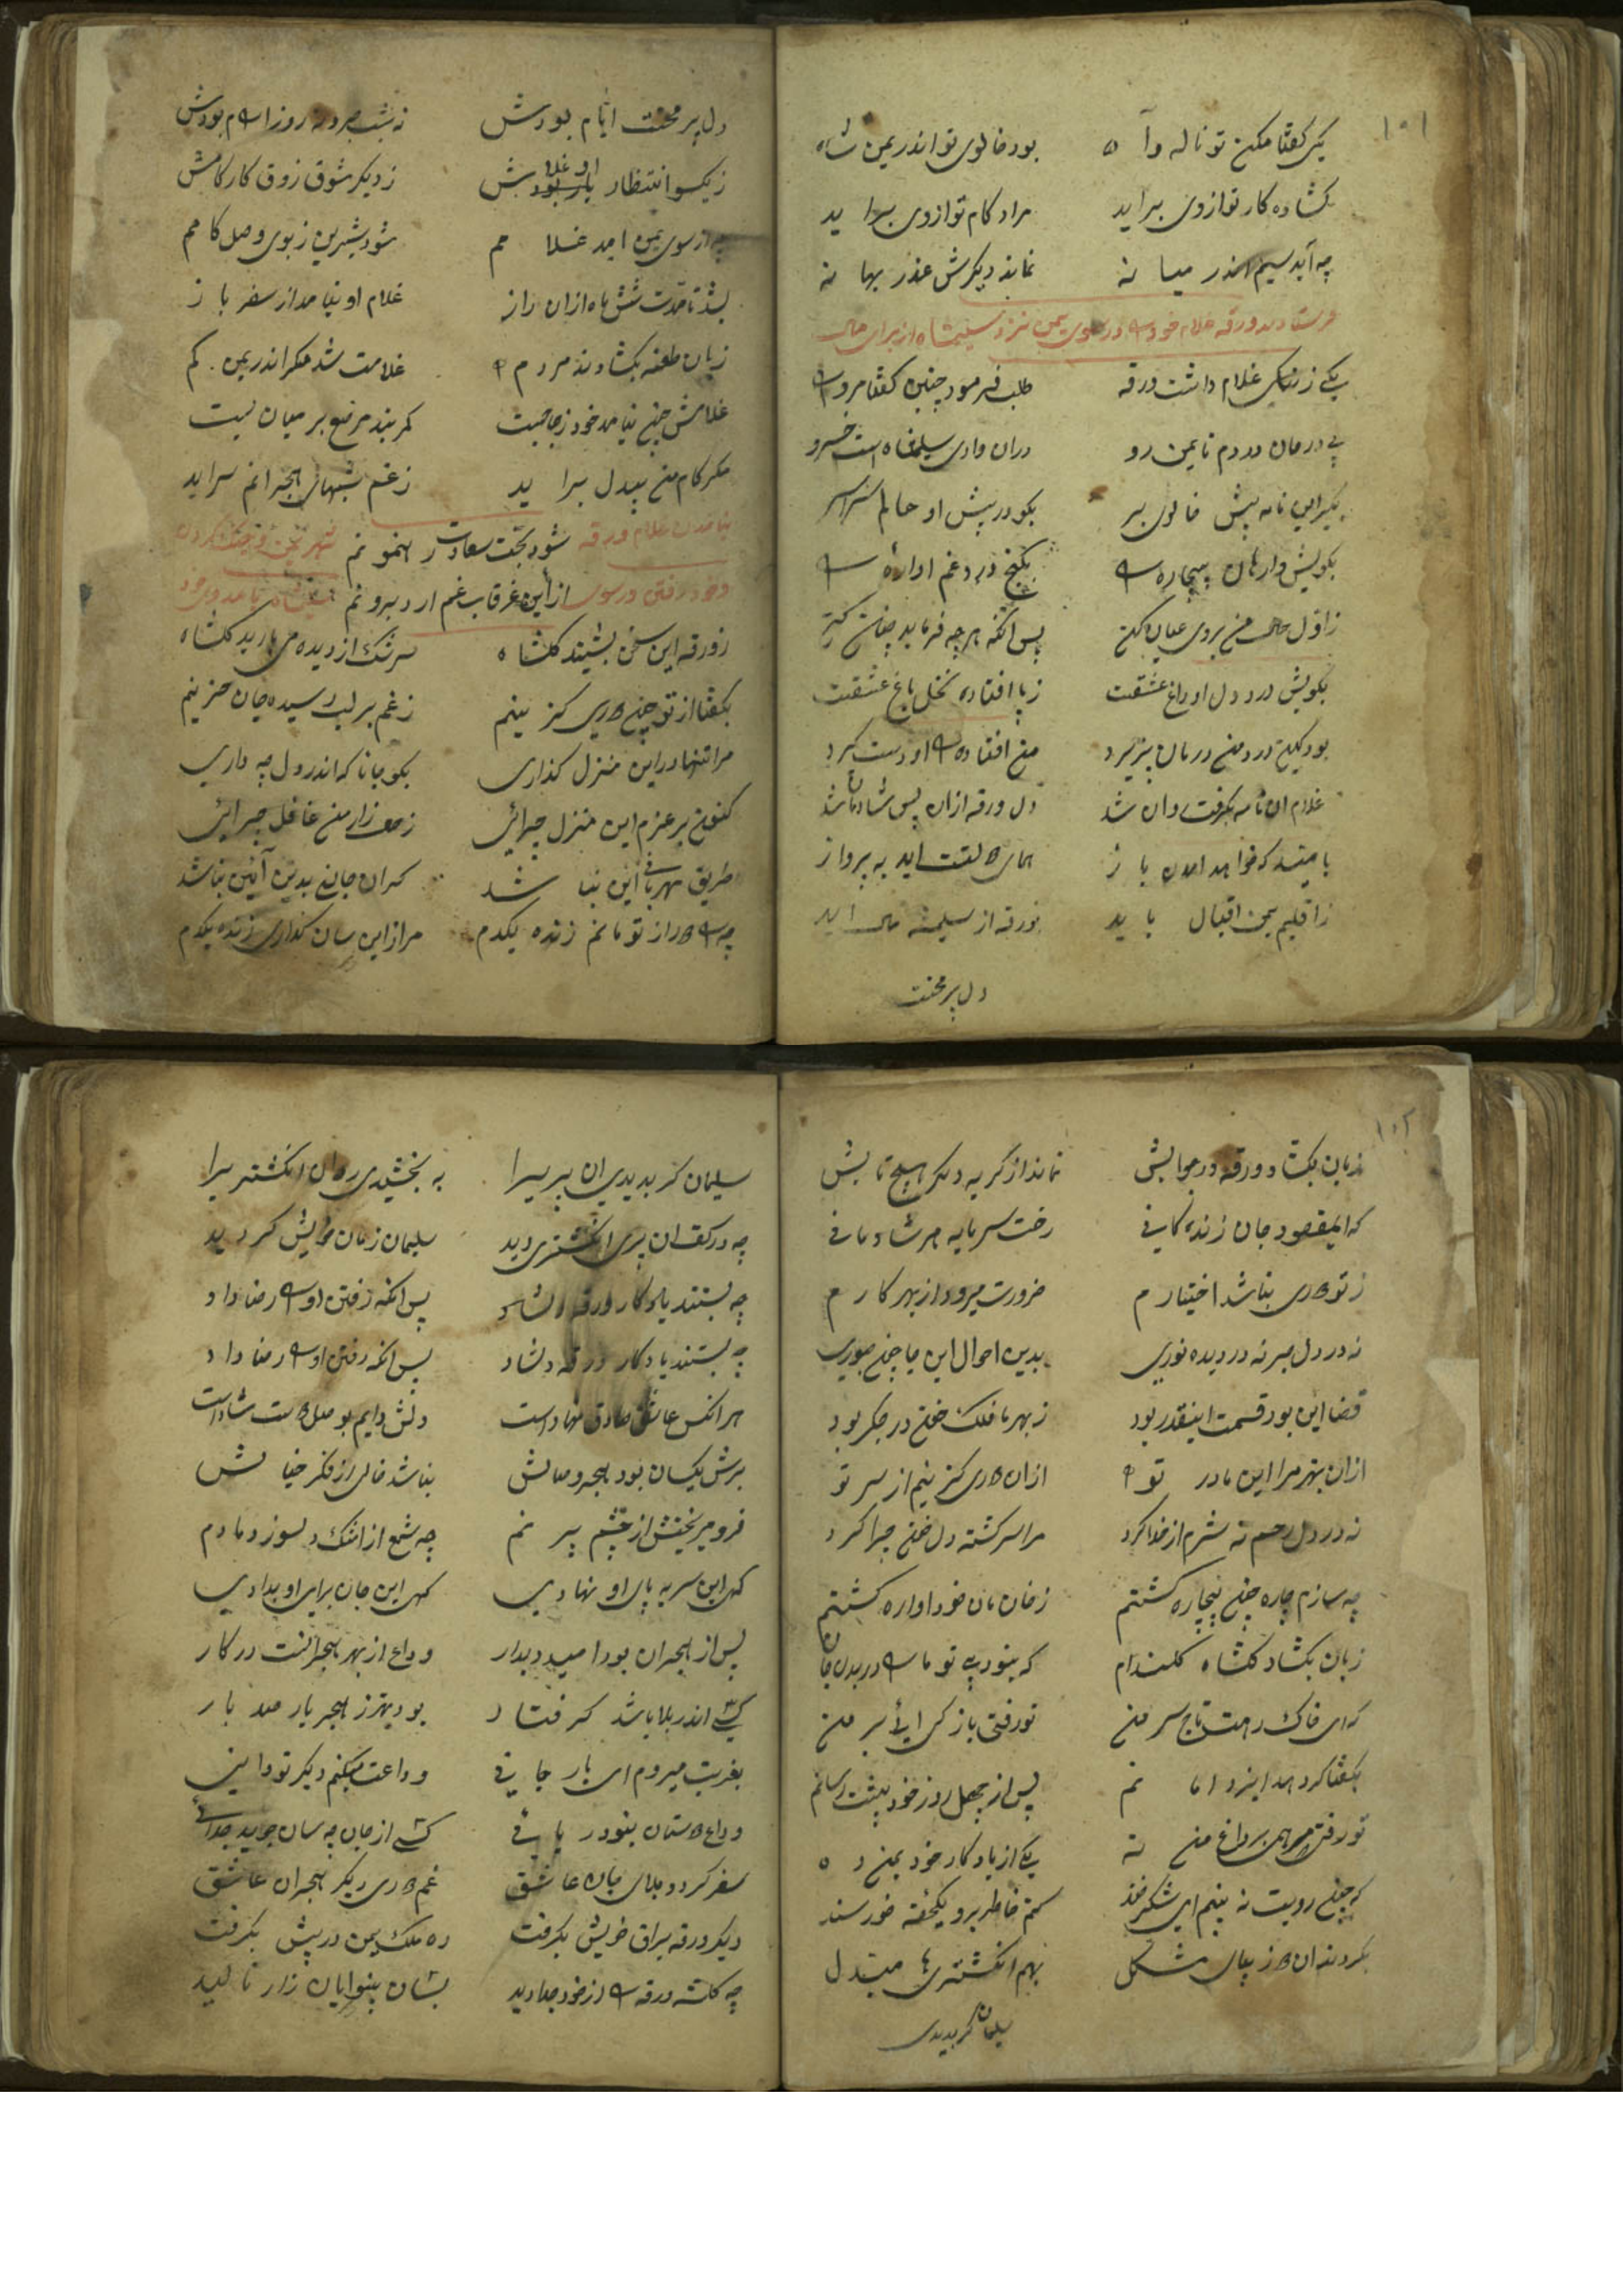 ۱۰۱
یکی گفتا مکن تو ناله و آه بود خالوی تو اندر یمن شاه
گشاده کار تو ازوی براید مراد کام تو ازوی براید
چه آید سیم اندر میانه نماند دیگرش عذر بهانه
فرستادن ورقه غلام خود را در سوی یمن نزد سلیمشاه از برای مال
یکی زرنگی غلام داشت ورقه طلب فرمود چنین گفتا مرو را
پی درمان دردم تا یمن رو دران وادی سلیمشاه است خسرو
بگیر این نامه پیش خالوی بر بگو در پیش او حالم سراسر
بگویش وارهان بیچاره را بکنج درد غم اواره را
ز اول حال من بروی عیان کن پس انکه هرچه فرماید چنان کن
بگویش درد دل او داغ عشقت ز پا افتاده نخل باغ عشقت
بود کین درد من درمان پزیرد من افتاده را او دست گیرد
غلام ان نامه بگرفت روان شد دل ورقه ازان پس شادمان شد
بامیند که خواهد امدن باز همای دولتت اید به پرواز
ز اقلیم یمن اقبال باید بورقه از سلیمشه مال اید
دل پر محنت
دل پر محنت ایام بودش نه شب صبر و نه روز ارام بودش
ز یکسو انتظار او غلامش ز دیگر شوق زوق کار کامش
چه از سوی یمن امد غلامم شود شیرین زبوی وصل کامم
بشد تا مدت شش ماه ازان راز غلام او نیامد از سفر باز
زبان طعنه بگشادند مردم را غلامت شد مگر اندر یمن گم
غلامش چون نیامد خود زحاجبت کمربند مرصع بر میان بست
مگر کام من بیدل براید زغم شبهای هجرانم سراید
نیامدن غلام ورقه شود بخت سعادت رهنمونم
وخود رفتن در سوی ازاین غرقاب غم ارد برونم
ز ورقه این سخن بشنید گلشاه سرشک از دیده می بارید گلشاه
بگفتا از تو چون دوری گزینم زغم بر لب رسیده جان حزینم
مرا تنها در این منزل گذاری بگو جانا که اندر دل چه داری
کنون بر عزم این منزل چرائی ز حال زار من غافل چرائی
طریق مهربانی این نباشد کران جانی بدین آئین نباشد
چه را دور از تو مانم زنده یکدم مرا زاین سان گذاری زنده یکدم
۱۰۲
زبان بگشاد ورقه در جوابش نماند از گریه دیگر هیچ تابش
که ایمقصود جان زندگانی رخت سرمایه هر شادمانی
ز تو دوری نباشد اختیارم ضرورت میرود از بهر کارم
نه در دل صبر نه در دیده نوری بدین احوال این جا چون صبوری
قضا این بود قسمت اینقدر بود ز بهر ما فلک خون در جگر بود
ازان بهتر مرا این مادر تو را ازان دوری گزینم از سر تو
نه در دل رحم نه شرم از خدا کرد مرا سرگشته دل خون چرا کرد
چه سازم چاره چون بیچاره گشتم ز خان مان خود اواره گشتم
زبان بگشاد گلشاه گلندام که بنود بی تو ما را در بدن جان
که ای خاک رهت تاج سر من تو رفتی باز کی ائی بر من
بگفتا گرد هد ایزد امانم پس از چهل روز خود پیشت رسانم
تو رفتی مرهمی بر داغ من نه یکی از یادگار خود بمن ده
که چون رویت نه بینم ای شکرخند کنم خاطر بر و یکحظه خورسند
بکردند ان دو ز بیبال مشکل بهم انگشتریها مبتدل
سلیمان گر بدیدی
سلیمان گر بدیدی ان پریرا به بخشیدی روان انگشتریرا
چه در کف ان پری انگشتری دید سلیمان زمان خوایش گردید
چه بستند یادگار ورقه دلشاد پس انکه رفتن او را رضا داد
چه بستند یادگار ورقه دلشاد پس انکه رفتن او را رضا داد
هر انکس عاشق صادق نهاد است دلش دایم بوصل دوست شاد است
برش یکسان بود هجر و صالش نباشد خالی از فکر خیالش
فرو میریختش از چشم پر نم چه شمع از اشک دلسوز و مادم
کهی این سر به پای او نهادی کهی این جان برای او بدادی
پس از هجران بود امید دیدار وداع از بهر هجرانت در کار
کسی اندر بلا باشد گرفتار بود بهتر ز هجر یار صد بار
بغربت میروم ای یار جانی وداعت میکنم دیگر تو دانی
وداع دوستان بنود ریائی کسی از جان چه سان جوید جدائی
سفر کرد و بلای جان عاشق غم دوری دیگر هجران عاشق
دیگر ورقه یراق خویش بگرفت ره ملک یمن در پیش بگرفت
چه گلشه ورقه را از خود جدا دید بشان بینوایان زار نالید